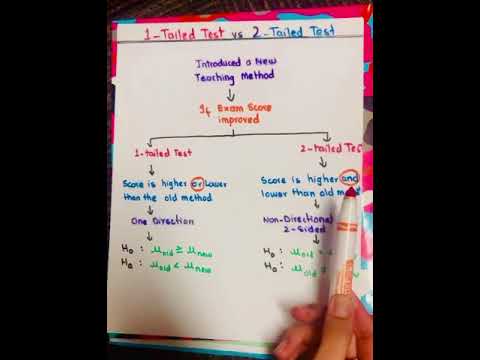 1-Tailed Test vs 2-Tailed Test
Introduced a New
Teaching Method
If Exam Score
improved
1-tailed Test
Score is higher or Lower
than the old method
One Direction
H₀ : μold ≥ μnew
Ha : μold < μnew
2-tailed Test
Score is higher and
lower than old
Non-Directional
2-sided
H₀ : μold
Ha : μold